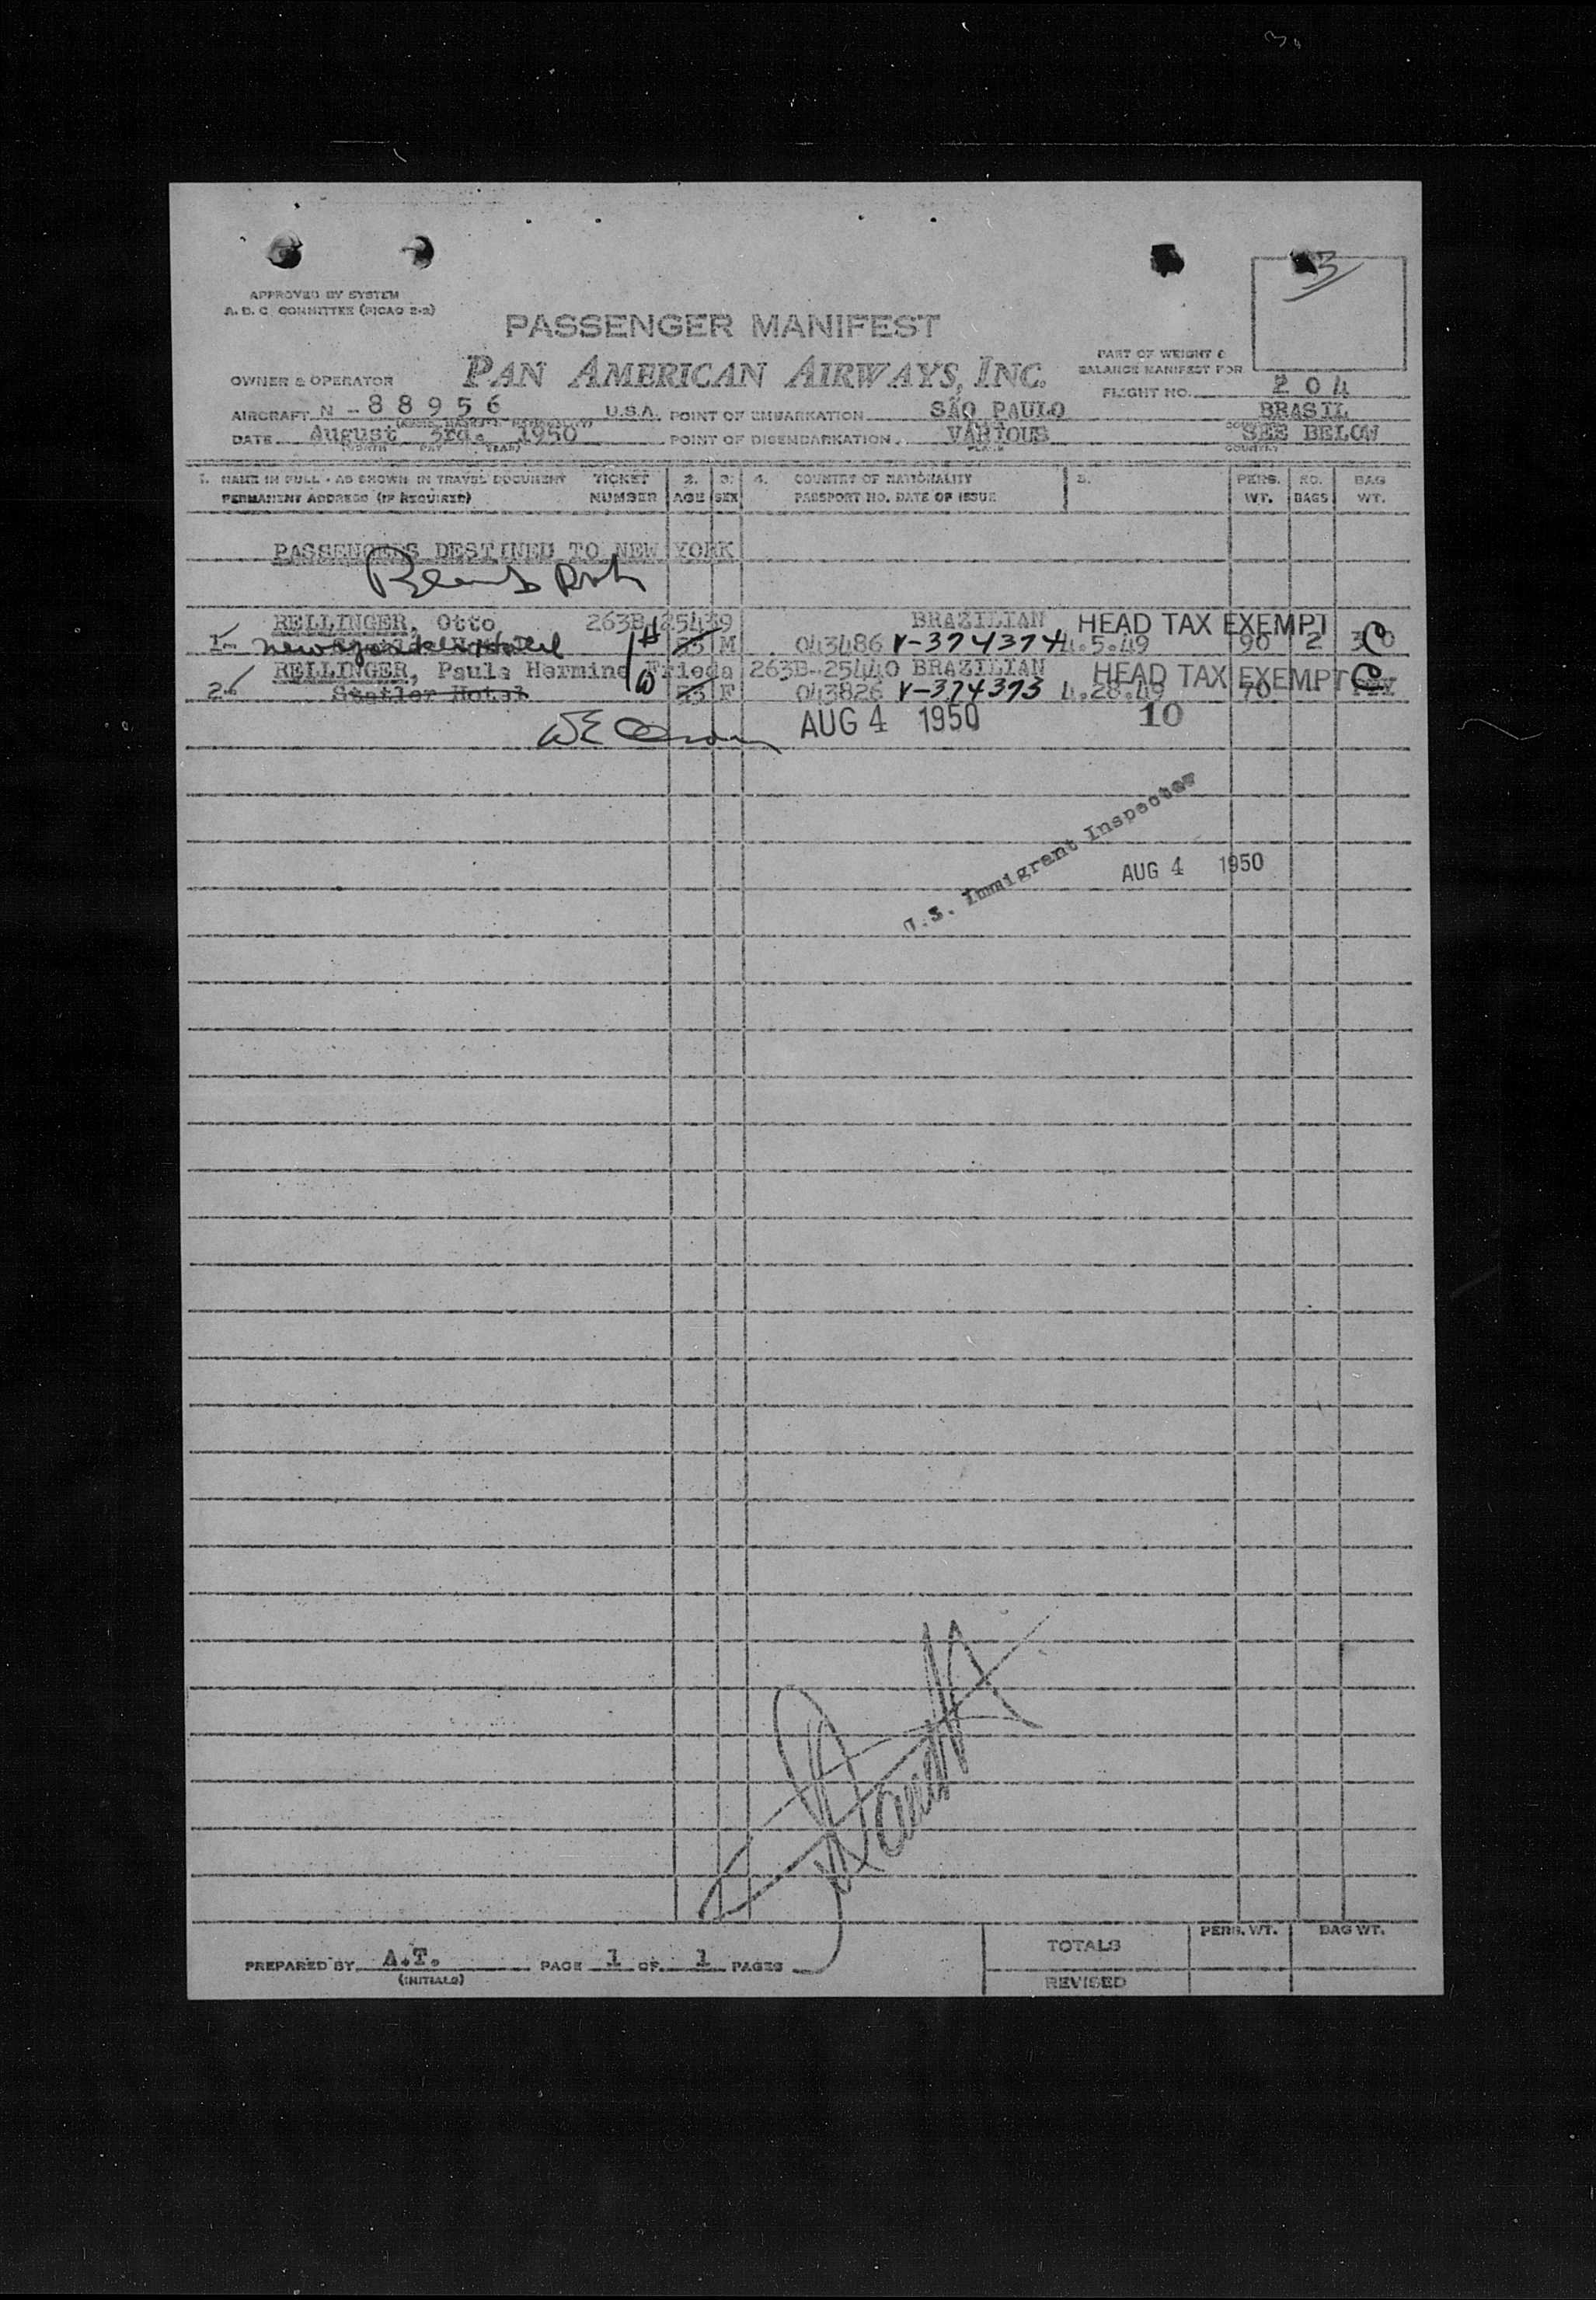 3
APPROVED BY SYSTEM
A. D. C. COMMITTEE (PICAO 2-2)
PASSENGER MANIFEST
PAN AMERICAN AIRWAYS, INC.
PART OF WEIGHT &
BALANCE MANIFEST FOR
OWNER & OPERATOR
FLIGHT NO. 204
AIRCRAFT N-88956 U.S.A. POINT OF EMBARKATION SÃO PAULO BRASIL
DATE August 3rd. 1950 POINT OF DISEMBARKATION VARIOUS SEE BELOW
(MONTH DAY YEAR) PLACE COUNTRY
1. NAME IN FULL - AS SHOWN IN TRAVEL DOCUMENT TICKET 2. 3. 4. COUNTRY OF NATIONALITY 5. PERS. NO. BAG
PERMANENT ADDRESS (IF REQUIRED) NUMBER AGE SEX PASSPORT NO. DATE OF ISSUE WT. BAGS WT.
PASSENGERS DESTINED TO NEW YORK
RELLINGER, Otto 263B-25439 BRAZILIAN HEAD TAX EXEMPT
1. New Yorker Hotel H M 043486 V-374374 4.5.49 90 2 C
RELLINGER, Paula Hermine Frieda 263B-25440 BRAZILIAN HEAD TAX EXEMPT C
2. Statler Hotel W F 043826 V-374373 4.28.49 70
AUG 4 1950 10
U.S. Immigrant Inspector
AUG 4 1950
PERS. WT. BAG WT.
TOTALS
PREPARED BY A.T. PAGE 1 OF 1 PAGES
(INITIALS)
REVISED